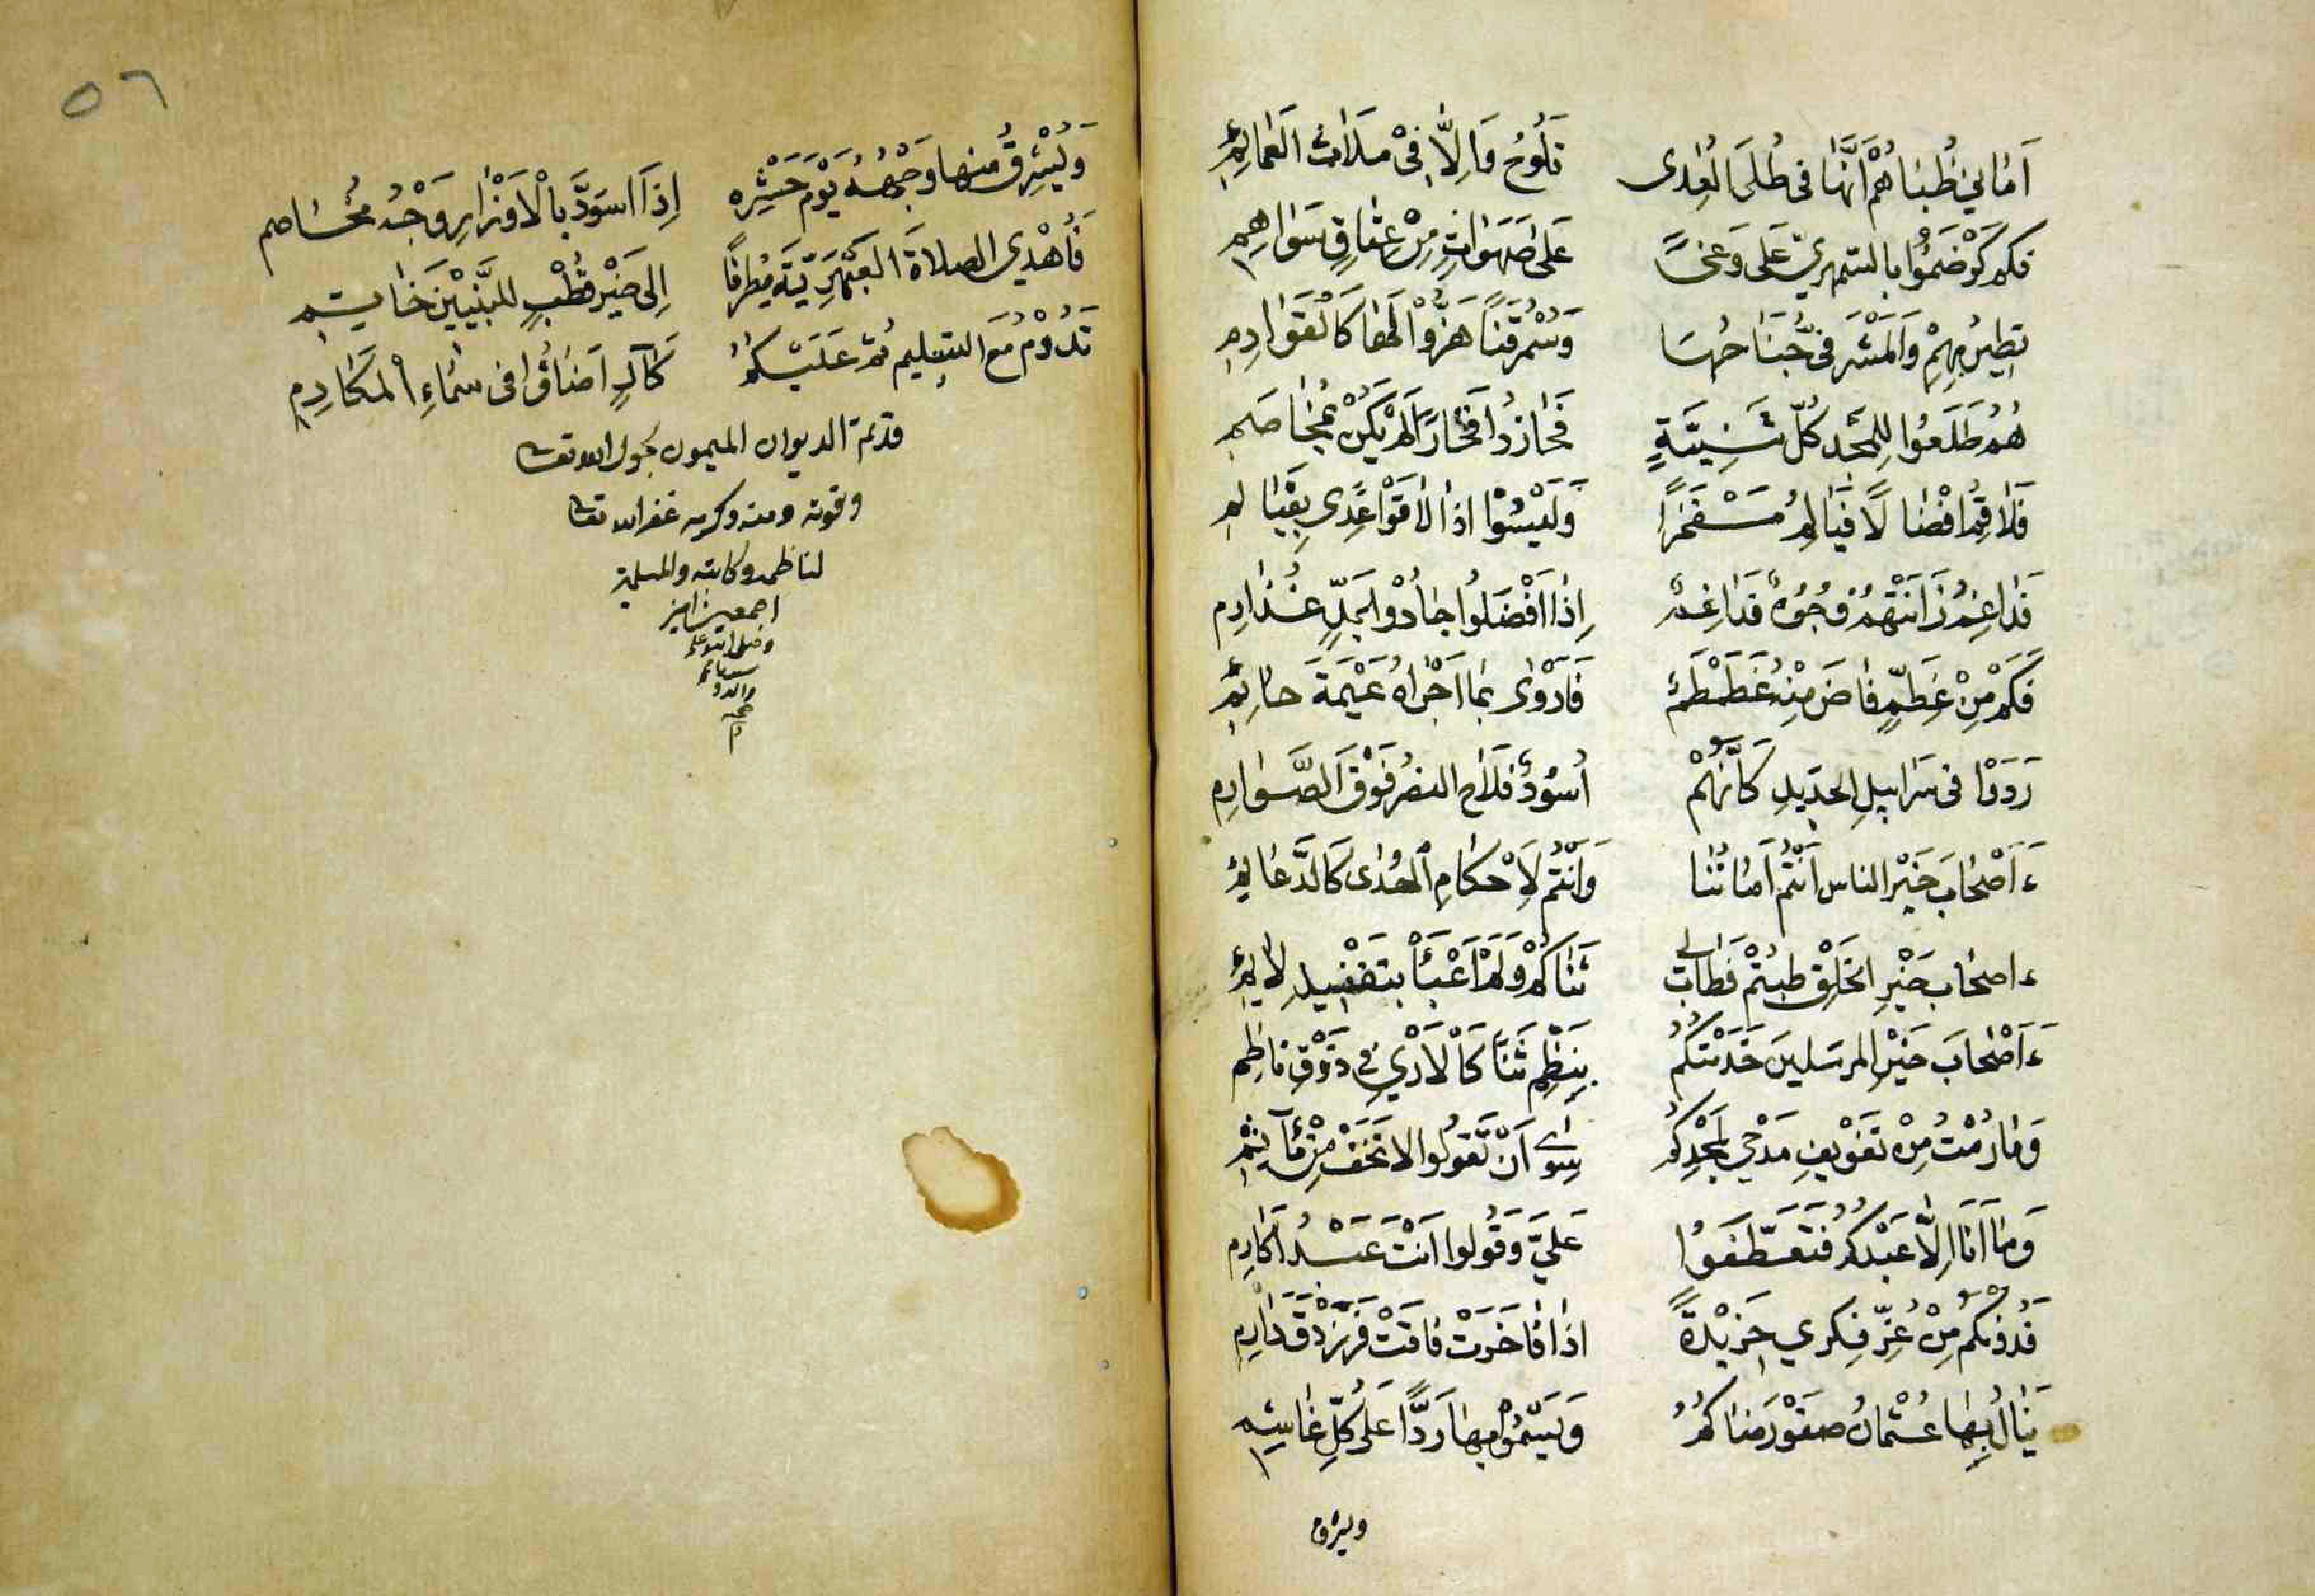 أَمَانِي ظُبَاهُمْ أَنَّهَا فِي طُلَى الْعِدَى تَلُوحُ وَإِلَّا فِي مَلَاثِ الْعَمَائِمِ
فكم عَلَى وَغىً عَلَى صَهَوَاتٍ مِنْ عِتَاقٍ سَوَاهِمِ
تطير بهم وَالْمَشْرَفيّ جَنَاحُهَا وَسُمْر قَناً هَزُّوا لَهَا كَالْقَوَادِمِ
هُمْ طَلَعُوا لِلْمَجْدِ كُلَّ ثَنِيَّةٍ فَحَازُوا فَخَارًا لَمْ يَكُنْ
اذا
إِذَا أَفْضَلُوا جَادُوا
فَكَمْ مِنْ غِطَمٍّ فَاضَ مِنْهُ غَطَمْطَمٌ فَارْوَى بِمَا أَجْرَاهُ عَيْمَةَ حَائِمِ
في سَرَابِيلِ الحديد كَأَنَّهُمْ أُسُودٌ فَلَاحَ النصرُ فَوْقَ الصَّوَارِمِ
ءَأَصْحَابَ خَيْرِ الناس أَنْتُمْ أَمَانُنَا وَأَنْتُمْ لِأَحْكَامِ الْهُدَى كَالدَّعَائِمِ
ءَاصحَابَ خَيْرِ الْخَلْقِ طِبْتُمْ فَطَابَ لِي ثَنَاكُمْ وَلَمْ أَعْبَأْ بتفنيدِ لَائِمِ
ءَأَصْحَابَ خَيْرِ المرسَلينَ خَدَمْتُكُمْ بِنَظْمِ ثَنًا كَالأَرْيِ فِي ذَوْقِ طَاعِمِ
وَمَا رُمْتُ مِنْ تَفْوِيفِ مَدْحِي لِمَجْدِكُمْ سِوَى أَنْ تَقُولُوا لَا تَخَفْ مِنْ مَآثِمِ
وَمَا أَنَا إِلَّا عَبْدُكُمْ فَتَعَطَّفُوا عَلَيَّ وَقُولُوا أَنْتَ عَبْدُ أَكَارِمِ
فَدُونَكُمُ مِنْ عِزِّ فِكْرِي خَرِيدَةً اذا فَاخَرَتْ فَاقَتْ فَرَزْدَقَ دَارِمِ
يَنَالُ بِهَا عُثْمَانُ صَفْوَ رِضَاكُمُ وَيَسْمُو بِهَا رَدًّا عَلَى كُلِّ غَاشِمِ
ويشرق
٥٦
وَيُشْرِقُ مِنْهَا وَجْهُهُ يَوْمَ حَشْرِهِ إِذَا اسْوَدَّ بِالْأَوْزَارِ وَجْهُ مُخَاصم
فَأُهْدِي الصلاةَ الْعَبْهَرِيَّةَ مُطْرِفًا إِلَى خَيْرِ قُطْبٍ لِلنَّبِيِّينَ خَاتِمِ
تَدُومُ مَعَ التسليم ثُمَّ عَلَيْكُمُ كَآلٍ أَضَاؤُا فِي سَمَاءِ الْمَكَارِمِ
قد تمّ الديوان الميمون بحول الله تعالى
وقوته ومنه وكرمه غفر الله تعالى
لناظمه وكاتبه والمسلمين
اجمعين امين
وصلى الله على
سيدنا محمد
واله و
صحبه
م